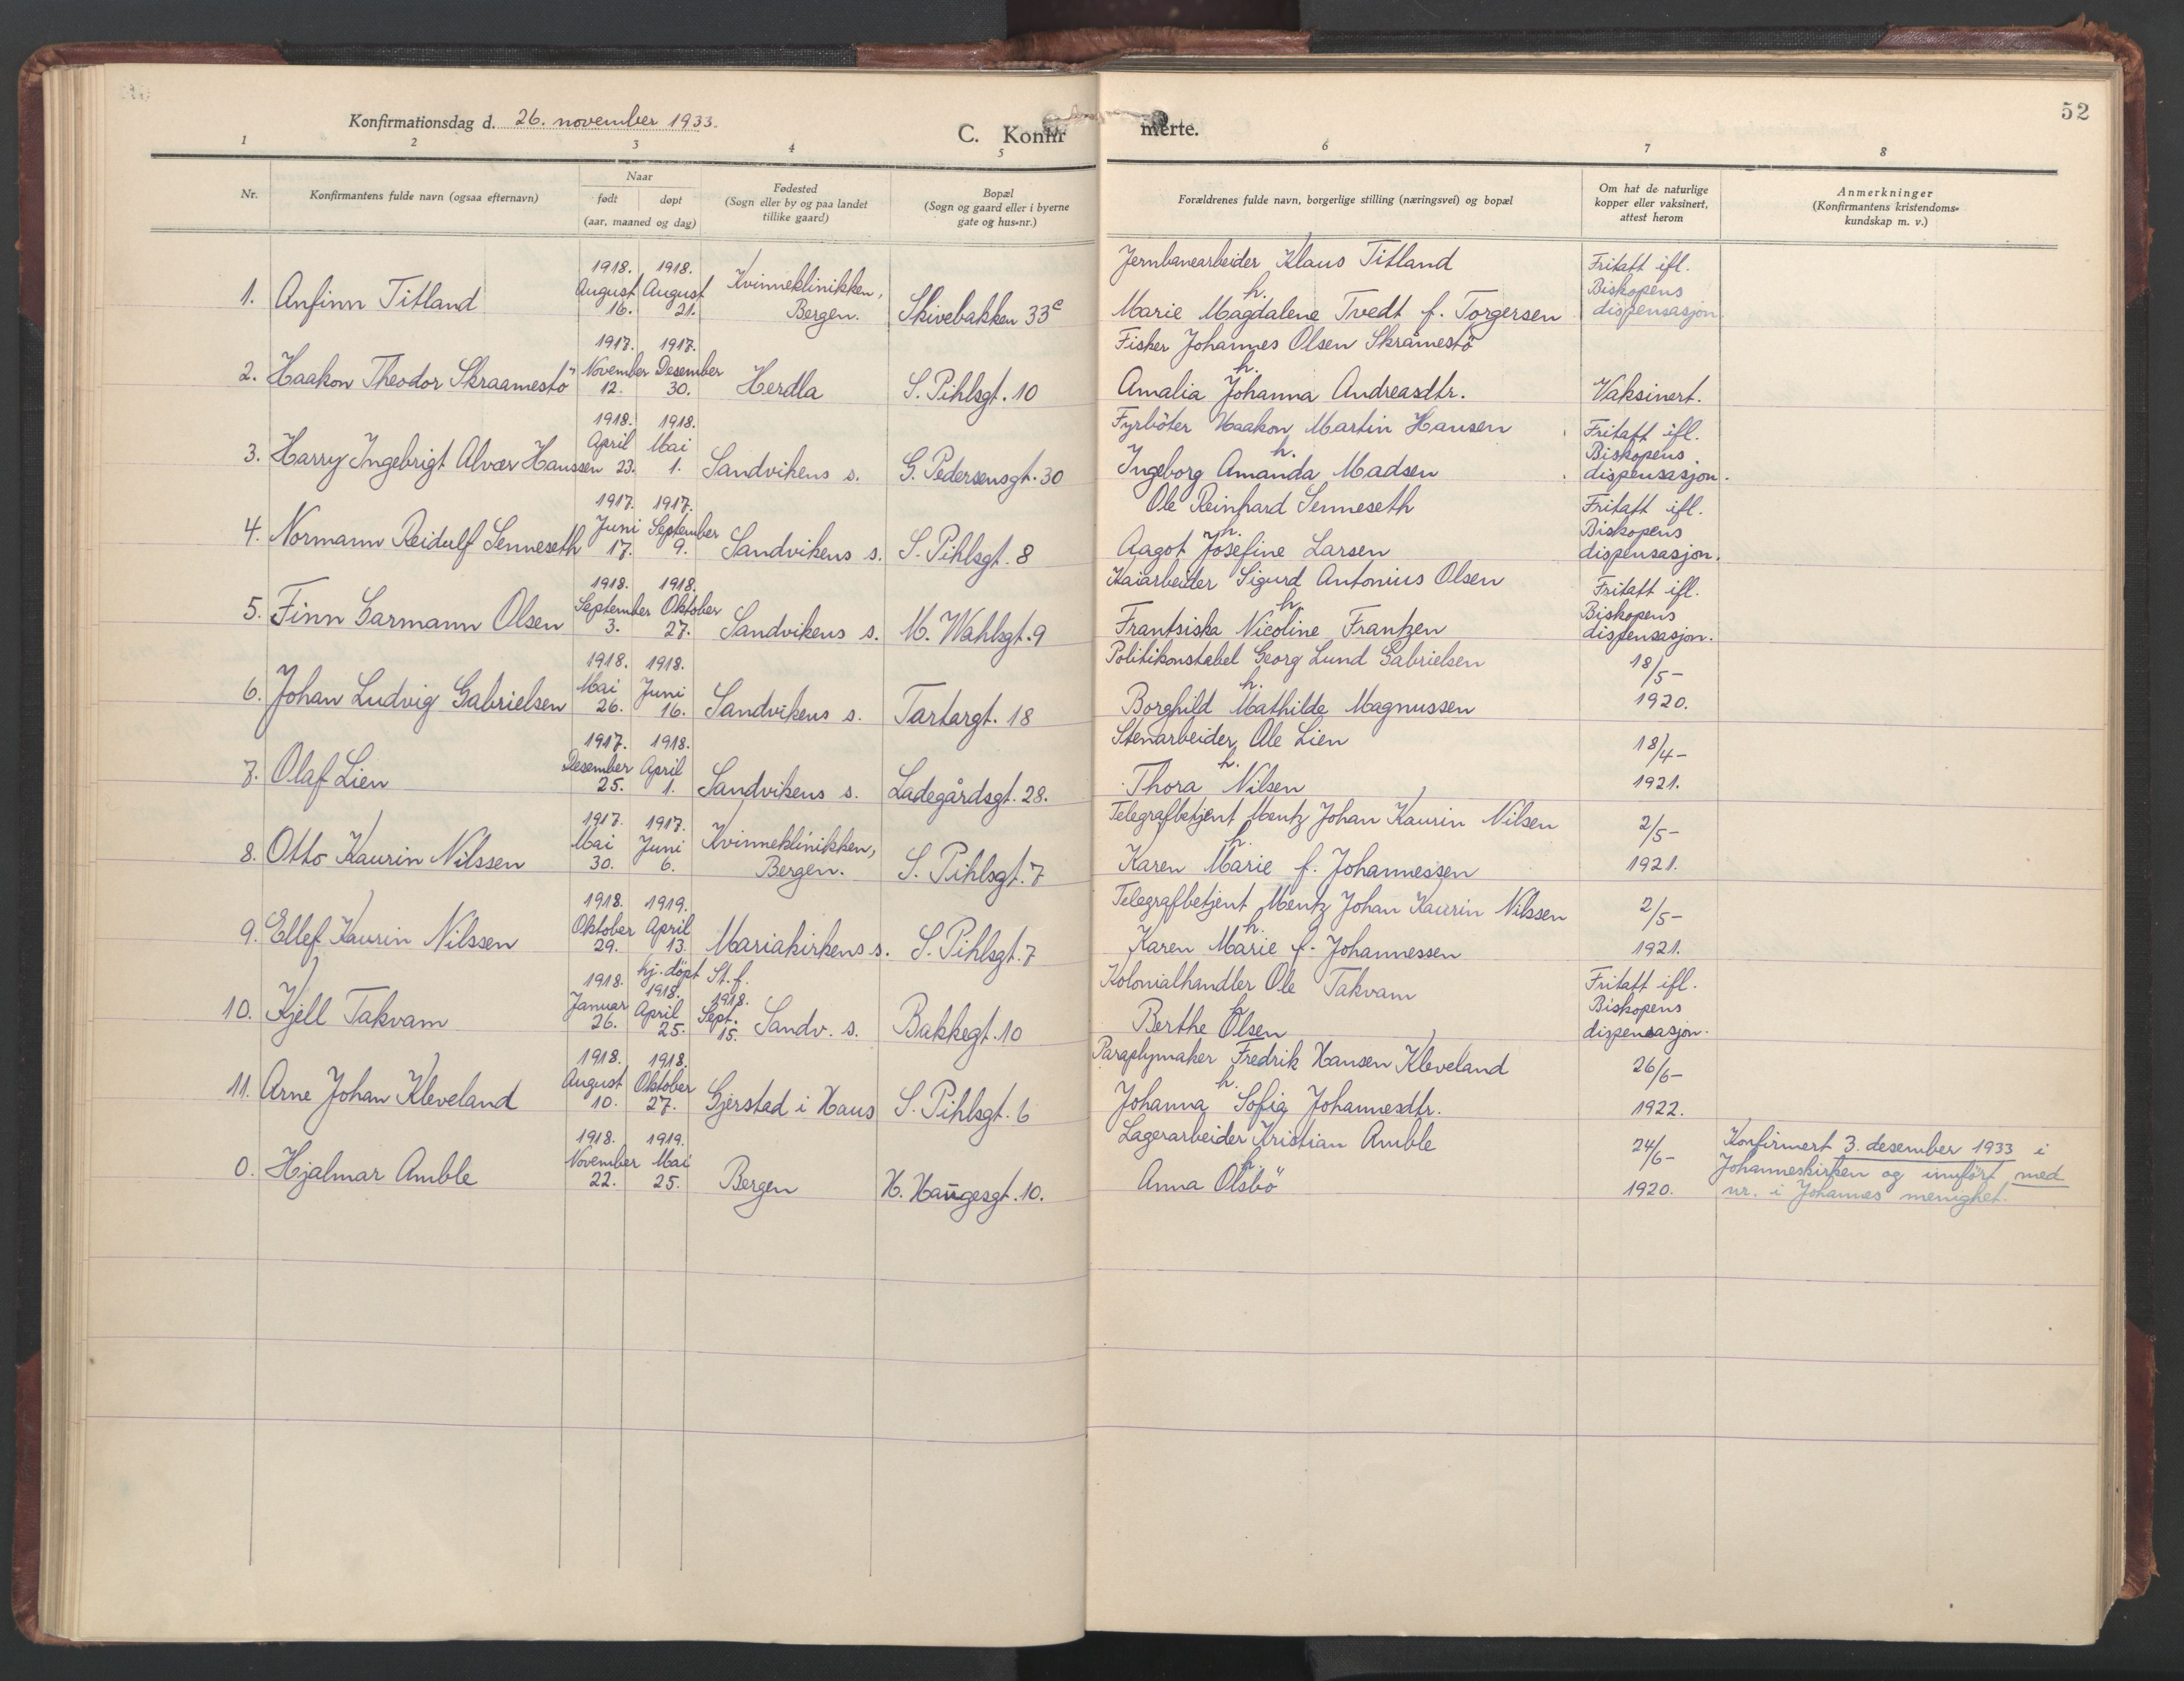 52
Konfirmationsdag d. 26. november 1933.
C. Konfirmerte.
1 2 3 4 5 6 7 8
Nr.
Konfirmantens fulde navn (ogsaa efternavn)
Naar
født døpt
(aar, maaned og dag)
Fødested
(Sogn eller by og paa landet
tillike gaard)
Bopæl
(Sogn og gaard eller i byerne
gate og hus-nr.)
Forældrenes fulde navn, borgerlige stilling (næringsvei) og bopæl
Om hat de naturlige
kopper eller vaksinert,
attest herom
Anmerkninger
(Konfirmantens kristendoms-
kundskap m. v.)
1. Anfinn Titland
1918. August 16.
1918. August 21.
Kvinneklinikken,
Bergen.
Skivebakken 33c
Jernbanearbeider Klaus Titland
h.
Marie Magdalene Tvedt f. Torgersen
Fritatt ifl.
Biskopens
dispensasjon
2. Haakon Theodor Skraamestö
1917. November 12.
1917. Desember 30.
Herdla
S. Pihlsgt. 10
Fisker Johannes Olsen Skråmestö
h.
Amalia Johanna Andreasdtr.
Vaksinert.
3. Harry Ingebrigt Alvær Hanssen
1918. April 23.
1918. Mai 1.
Sandvikens s.
G. Pedersensgt. 30
Fyrböter Haakon Martin Hansen
h.
Ingeborg Amanda Madsen
Fritatt ifl.
Biskopens
dispensasjon.
4. Normann Reidulf Senneseth
1917. Juni 17.
1917. September 9.
Sandvikens s.
S. Pihlsgt. 8
Ole Reinhard Senneseth
h.
Aagot Josefine Larsen
Fritatt ifl.
Biskopens
dispensasjon.
5. Finn Garmann Olsen
1918. September 3.
1918. Oktober 27.
Sandvikens s.
M. Wahlsgt. 9
Kaiarbeider Sigurd Antonius Olsen
h.
Frantsiska Nicoline Frantzen
Fritatt ifl.
Biskopens
dispensasjon.
6. Johan Ludvig Gabrielsen
1918. Mai 26.
1918. Juni 16.
Sandvikens s.
Tartargt. 18
Politikonstabel Georg Lund Gabrielsen
h.
Borghild Mathilde Magnussen
18/5-
1920.
7. Olaf Lien
1917. Desember 25.
1918. April 1.
Sandvikens s.
Ladegårdsgt. 28.
Stenarbeider Ole Lien
h.
Thora Nilsen
18/4-
1921.
8. Otto Kaurin Nilssen
1917. Mai 30.
1917. Juni 6.
Kvinneklinikken,
Bergen.
S. Pihlsgt. 7
Telegrafbetjent Mentz Johan Kaurin Nilsen
h.
Karen Marie f. Johannessen
2/5-
1921.
9. Ellef Kaurin Nilssen
1918. Oktober 29.
1919. April 13.
Mariakirkens s.
S. Pihlsgt. 7
Telegrafbetjent Mentz Johan Kaurin Nilssen
h.
Karen Marie f. Johannessen
2/5-
1921.
10. Kjell Takvam
1918. Januar 26.
hj. döpt 1918. April 25.
St. f. 1918. Sept. 15.
Sandv. s.
Bakkegt. 10
Kolonialhandler Ole Takvam
h.
Berthe Olsen
Fritatt ifl.
Biskopens
dispensasjon.
11. Arne Johan Kleveland
1918. August 10.
1918. Oktober 27.
Gjerstad i Haus
S. Pihlsgt. 6
Paraplymaker Fredrik Hansen Kleveland
h.
Johanna Sofia Johannesdtr.
26/6-
1922.
0. Hjalmar Amble
1918. November 22.
1919. Mai 25.
Bergen
H. Haugesgt. 10.
Lagerarbeider Kristian Amble
h.
Anna Olsbö
24/6-
1920.
Konfirmert 3. desember 1933 i
Johanneskirken og innfört med
nr. i Johannes menighet.